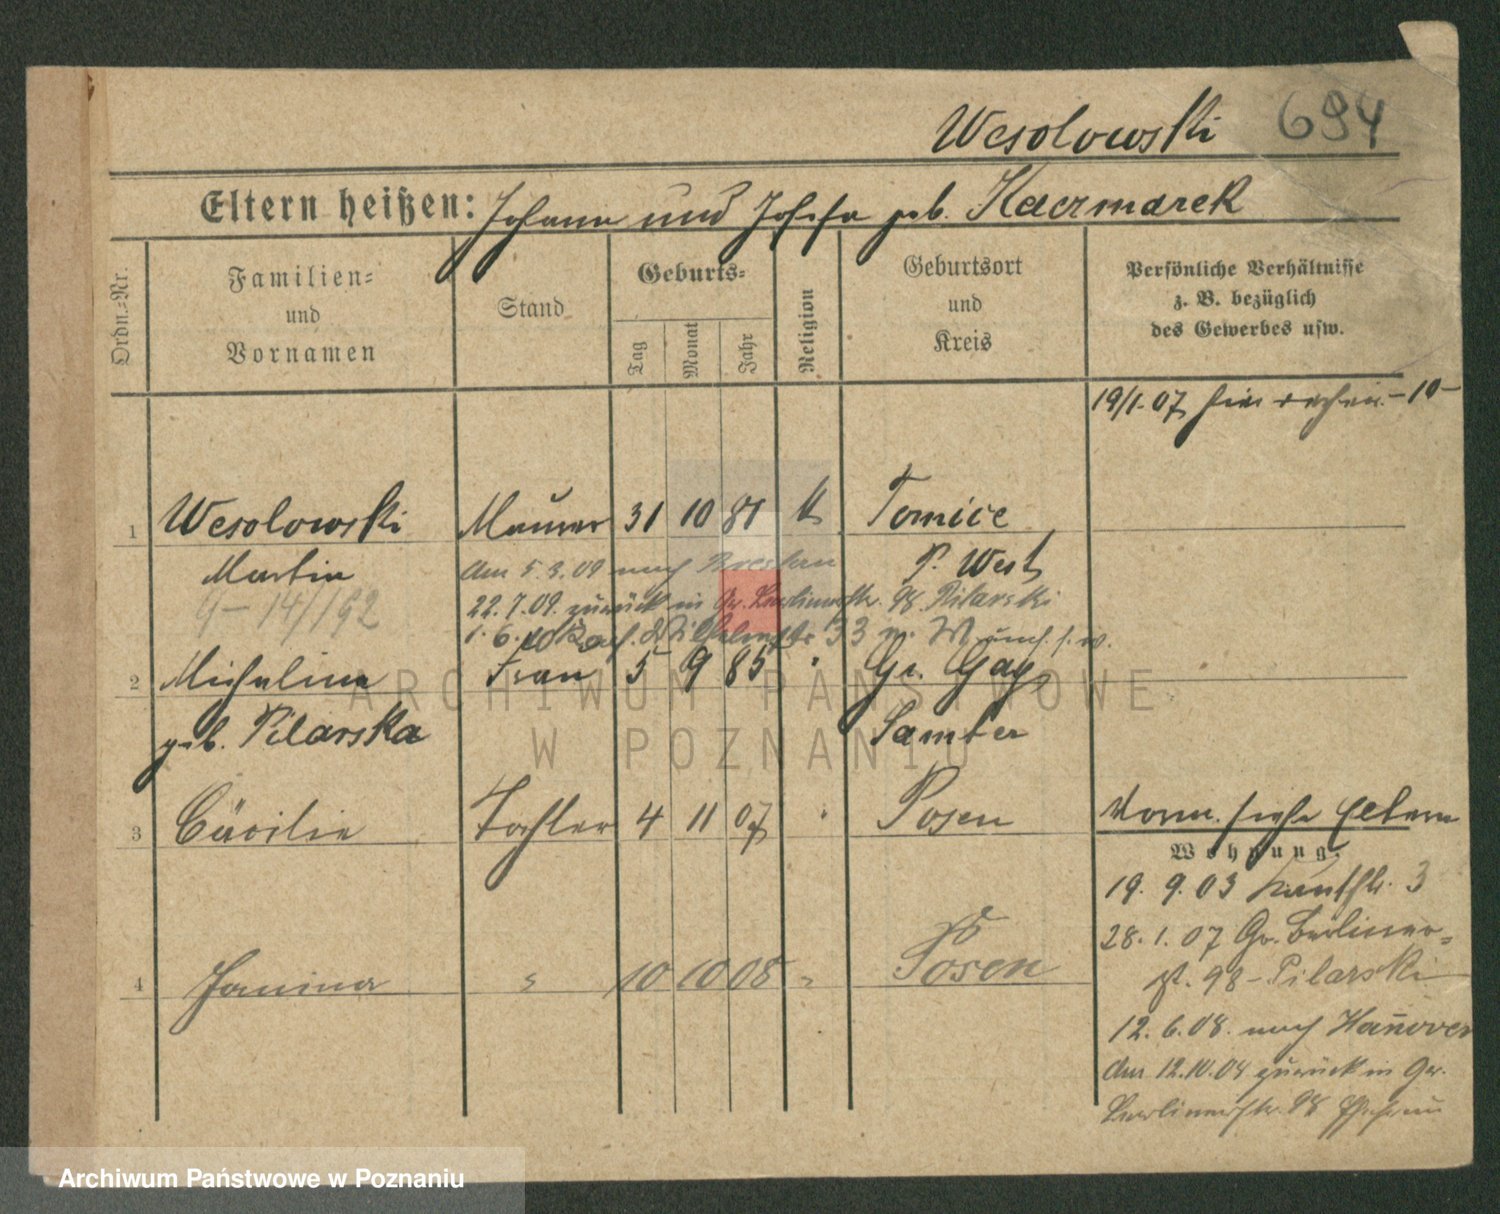 Wesolowski 694
Eltern heißen: Johann und Josefa geb. Kaczmarek
Ordn.-Nr.
Familien-
und
Vornamen
Stand
Geburts-
Tag
Monat
Jahr
Religion
Geburtsort
und
Kreis
Persönliche Verhältnisse
z. B. bezüglich
des Gewerbes usw.
19/1. 07 hier
1 Wesolowski Maurer 31 10 81 k Tomice
Martin P. West
am 5.3.09 nach Breslau
9-14/192
22.7.09. zurück in Gr. Berlinerstr. 98. Pilarski
1. 6. 10 33
2 Michalina Frau 5 9 85 " Gr. Gay
geb. Pilarska Samter
3 Cäcilie Tochter 4 11 07 " Posen
Vorm. siehe Eltern
Wohnung.
19. 9. 03 3
28. 1. 07 Gr. Berliner-
st. 98 - Pilarski
4 Janina " 10 10 08 " Posen
12. 6. 08. nach Hanover
am 12.10.08 zurück in Gr.
Berlinerstr. 98
ARCHIWUM PAŃSTWOWE
W POZNANIU
Archiwum Państwowe w Poznaniu